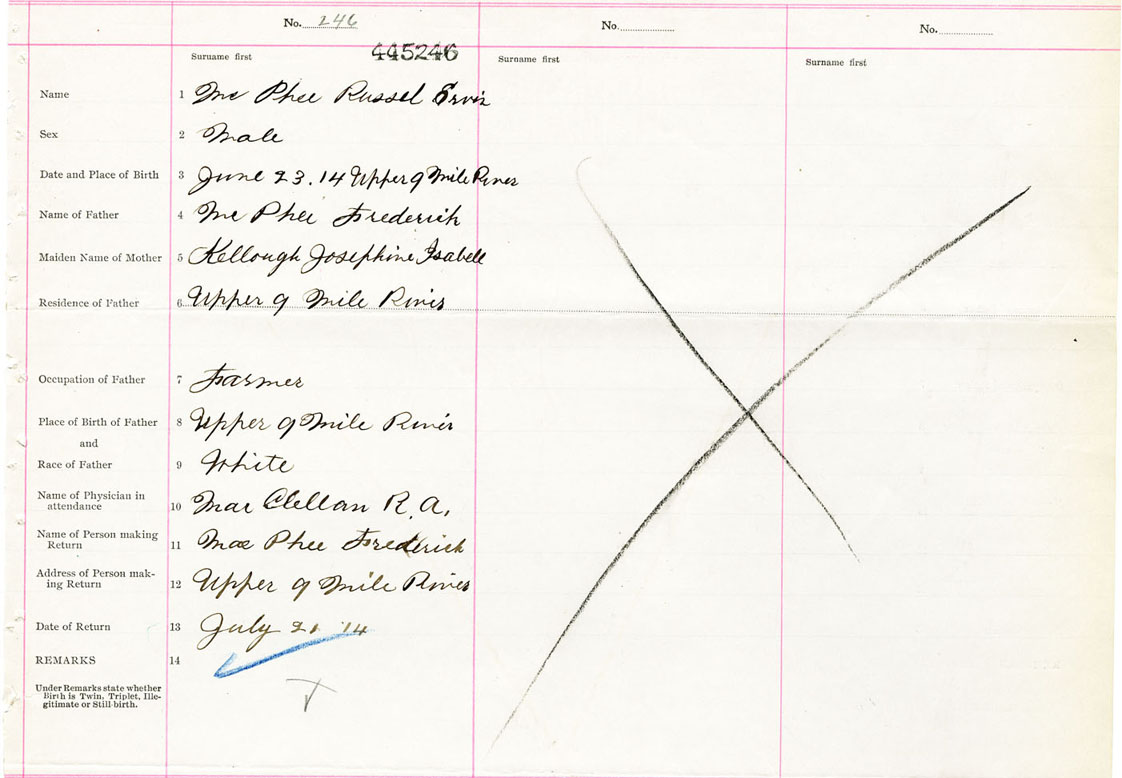 No. 246 No. No.
445246
Surname first Surname first Surname first
Name 1 Mc Phee Russel Ervin
Sex 2 Male
Date and Place of Birth 3 June 23. 14 Upper 9 Mile River
Name of Father 4 Mc Phee Frederick
Maiden Name of Mother 5 Kellough Josephine Isabell
Residence of Father 6 Upper 9 Mile River
Occupation of Father 7 Farmer
Place of Birth of Father 8 Upper 9 Mile River
and
Race of Father 9 White
Name of Physician in
attendance 10 Mac Clellan R. A.
Name of Person making
Return 11 Mac Phee Frederick
Address of Person mak-
ing Return 12 Upper 9 Mile River
Date of Return 13 July 21 '14
REMARKS 14
Under Remarks state whether
Birth is Twin, Triplet, Ille-
gitimate or Still-birth.